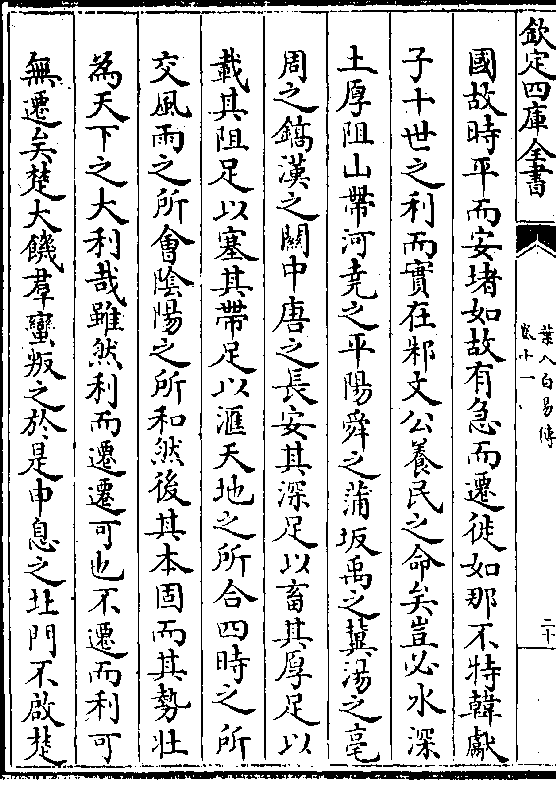 欽定四庫全書
葉八白易傳
卷十一
二十
國故時平而安堵如故有急而遷徙如那不特韓獻
子十世之利而實在邾文公養民之命矣豈必水深
土厚阻山帶河堯之平陽舜之蒲坂禹之冀湯之亳
周之鎬漢之關中唐之長安其深足以畜其厚足以
載其阻足以塞其帶足以滙天地之所合四時之所
交風雨之所會陰陽之所和然後其本固而其勢壯
為天下之大利哉雖然利而遷遷可也不遷而利可
無遷矣楚大饑羣蠻叛之於是申息之北門不啟楚